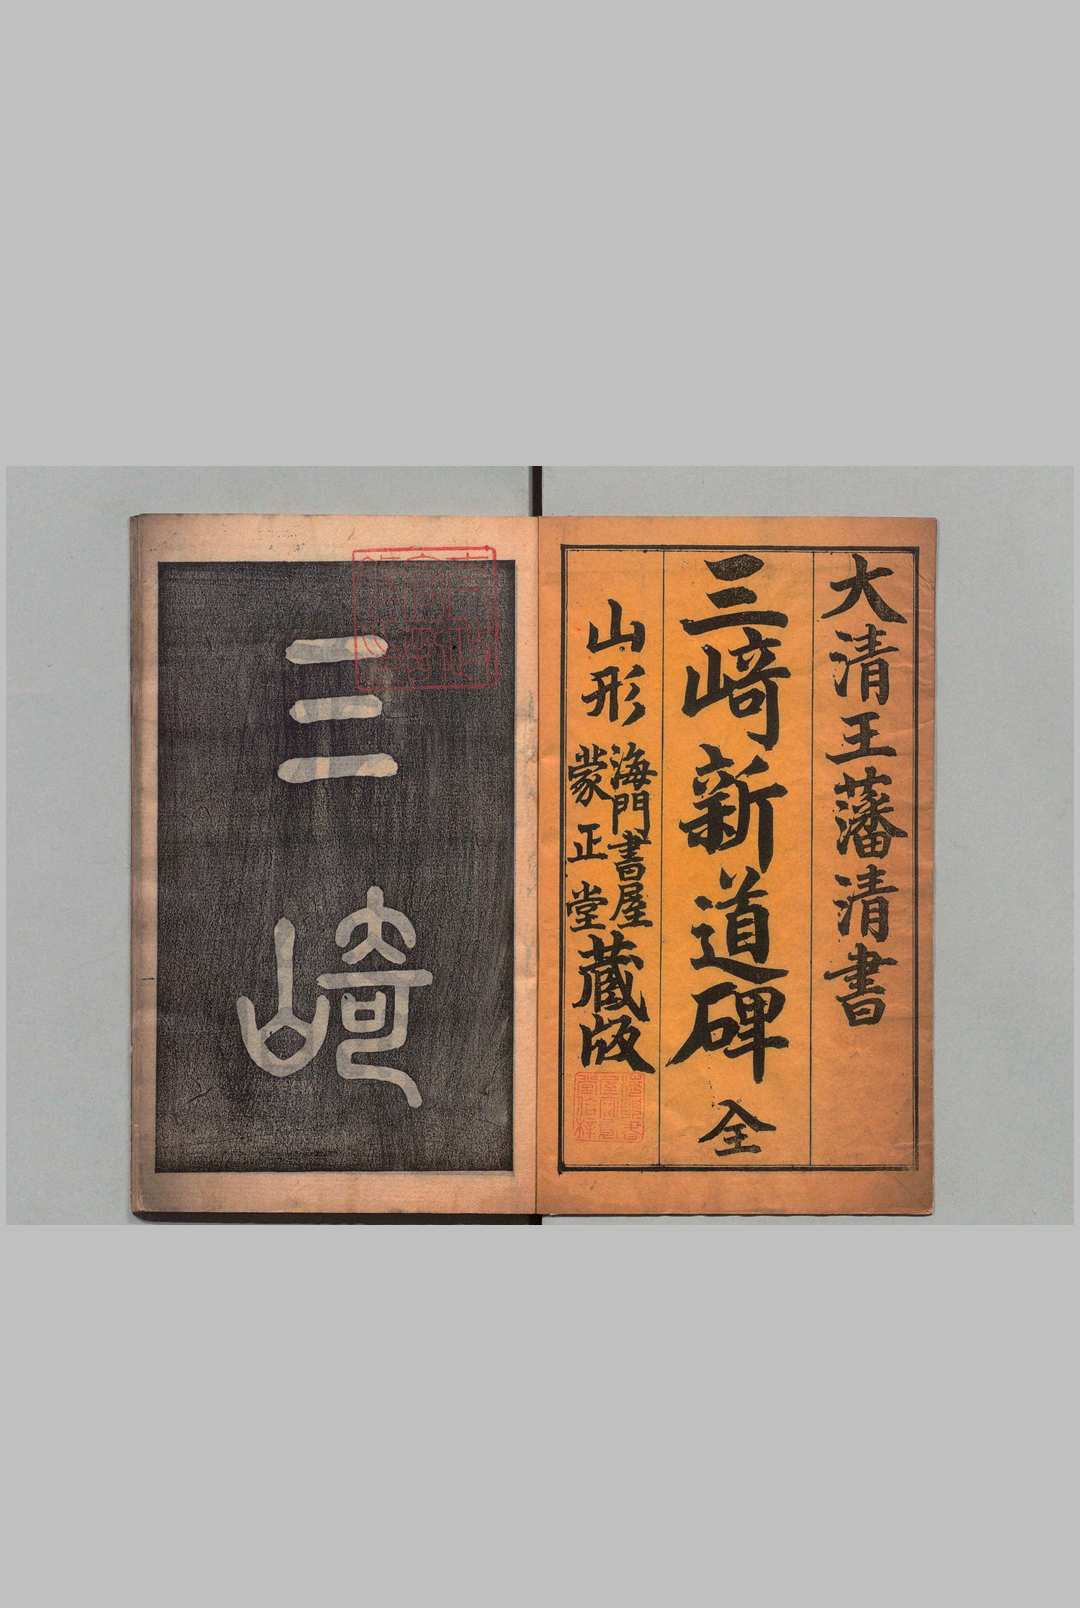 大清王藩清書
三﨑新道碑 全
山形
海門書屋
蒙正堂
藏版
三﨑